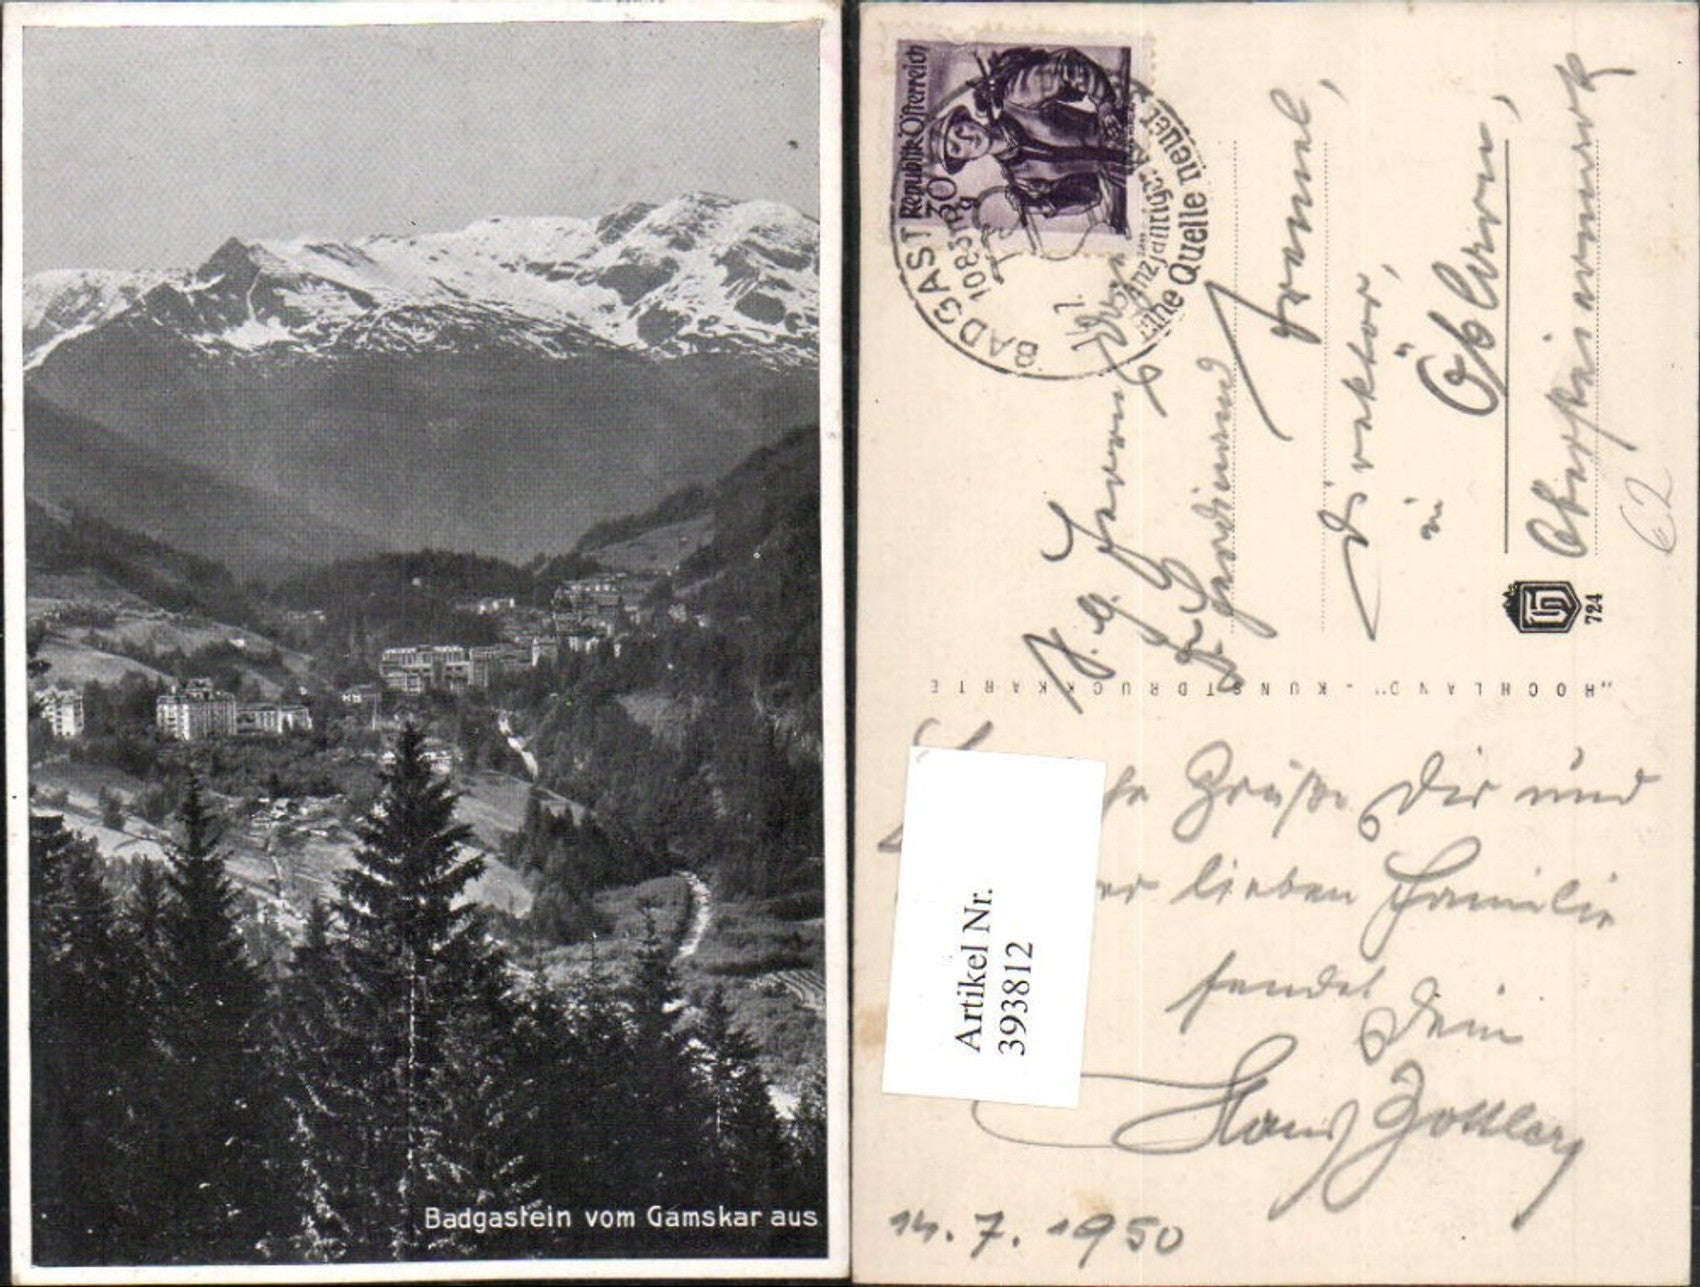 Badgastein vom Gamskar aus
Republik Österreich
30
BADGAST
1083 m
Ganzjähriger
eine Quelle neuer
S. g. Herrn
Ferdinand
Direktor,
in
Öblarn,
Obersteiermark
62
724
"HOCHLAND" - KUNSTDRUCKKARTE
Grüße Dir und
er lieben Familie
sendet
Dein
Hans
Artikel Nr.
393812
14. 7. 1950